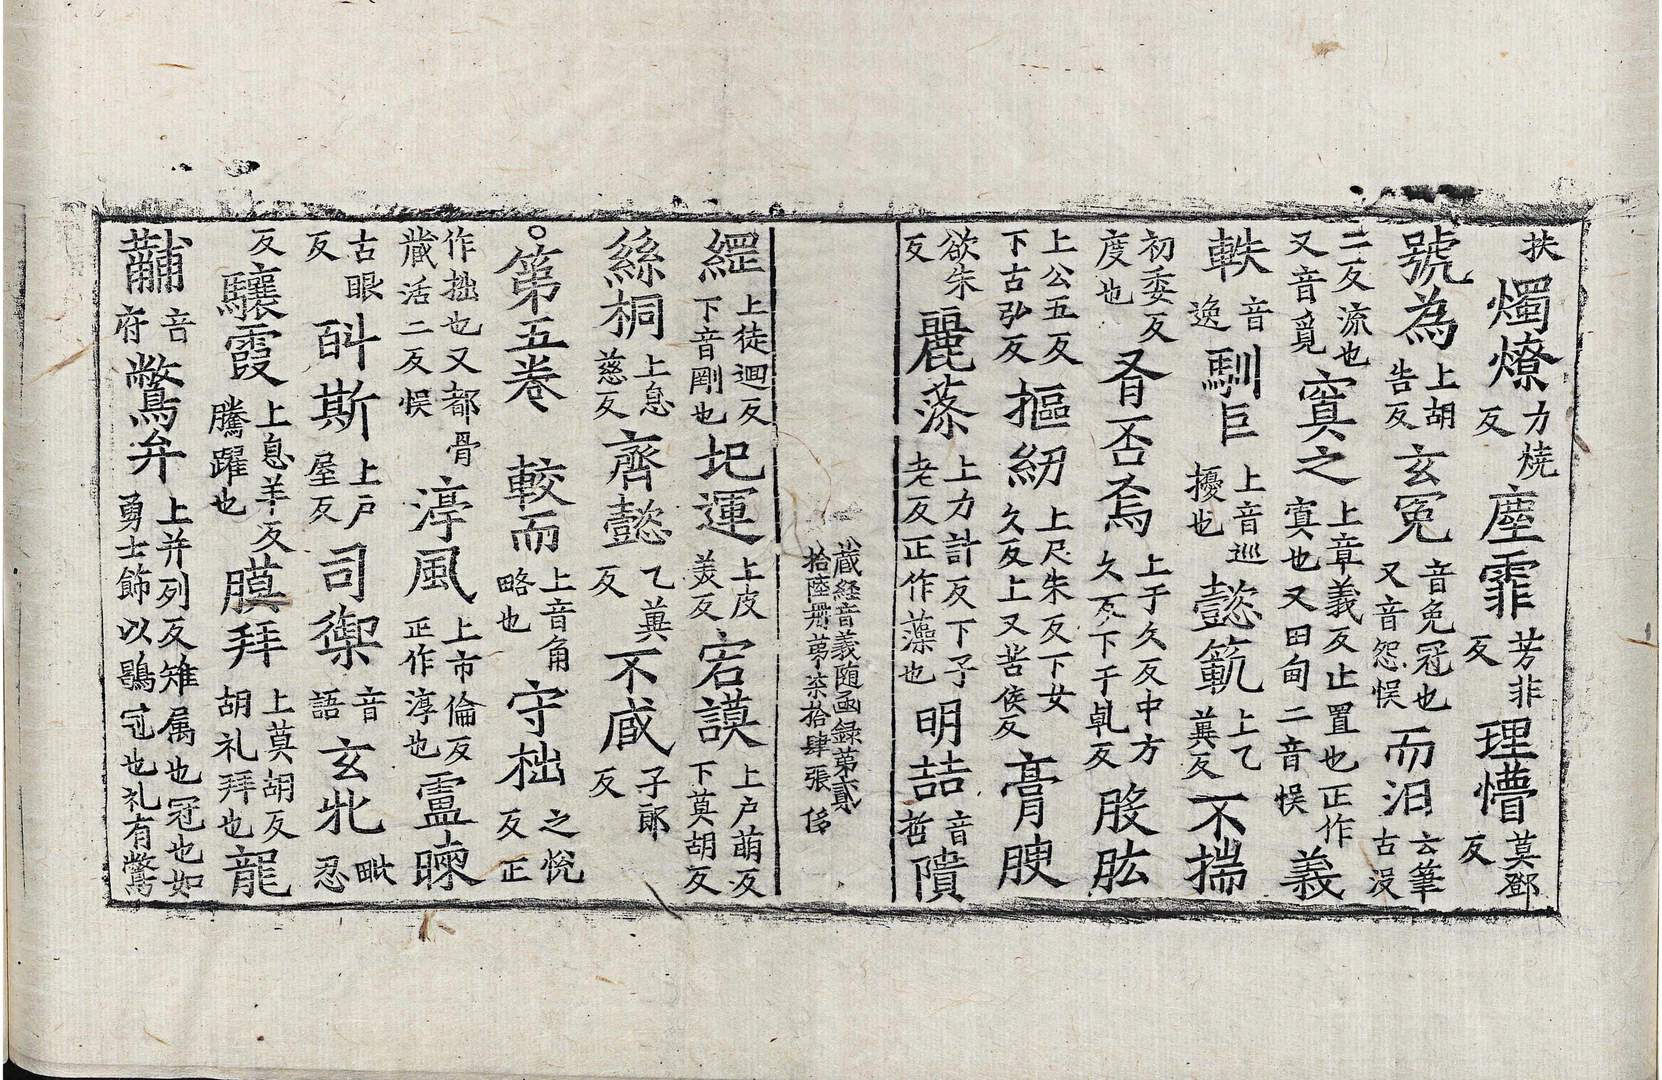 扶燭燎力燒反塵霏芳非反理懵莫鄧反
號為上胡告反玄冤音免冠也又音怨悮而汩云筆古沒
二反流也又音覓窴之上章義反止置也正作寘也又田甸二音悮義
軼音逸馴巨上音巡擾也懿範上乙兾反不揣
初委反度也胥否焉上于久反中方久反下于乹反股肱
上公五反下古弘反摳紉上尺朱反下女久反上又苦侯反膏腴
欲朱反麗蒤上力計反下子老反正作藻也明喆音哲隤
藏経音義随函録第貳拾陸冊第柒拾肆張 侈
綱上徒迴反下音剛也圮運上皮美反宕謨上户萌反下莫胡反
絲桐上息慈反齊懿乙兾反不戚子郍反
。第五卷 較而上音角略也守柮之恱反正
作拙也又都骨藏活二反悮渟風上市倫反正作淳也霊暕
古眼反斟斯上户屋反司禦音語玄牝毗忍
反驤霞上息羊反騰躍也膜拜上莫胡反胡礼拜也龍
黼音府鷩弁上并列反雉属也冠也如勇士飾以鶡冠也礼有鷩